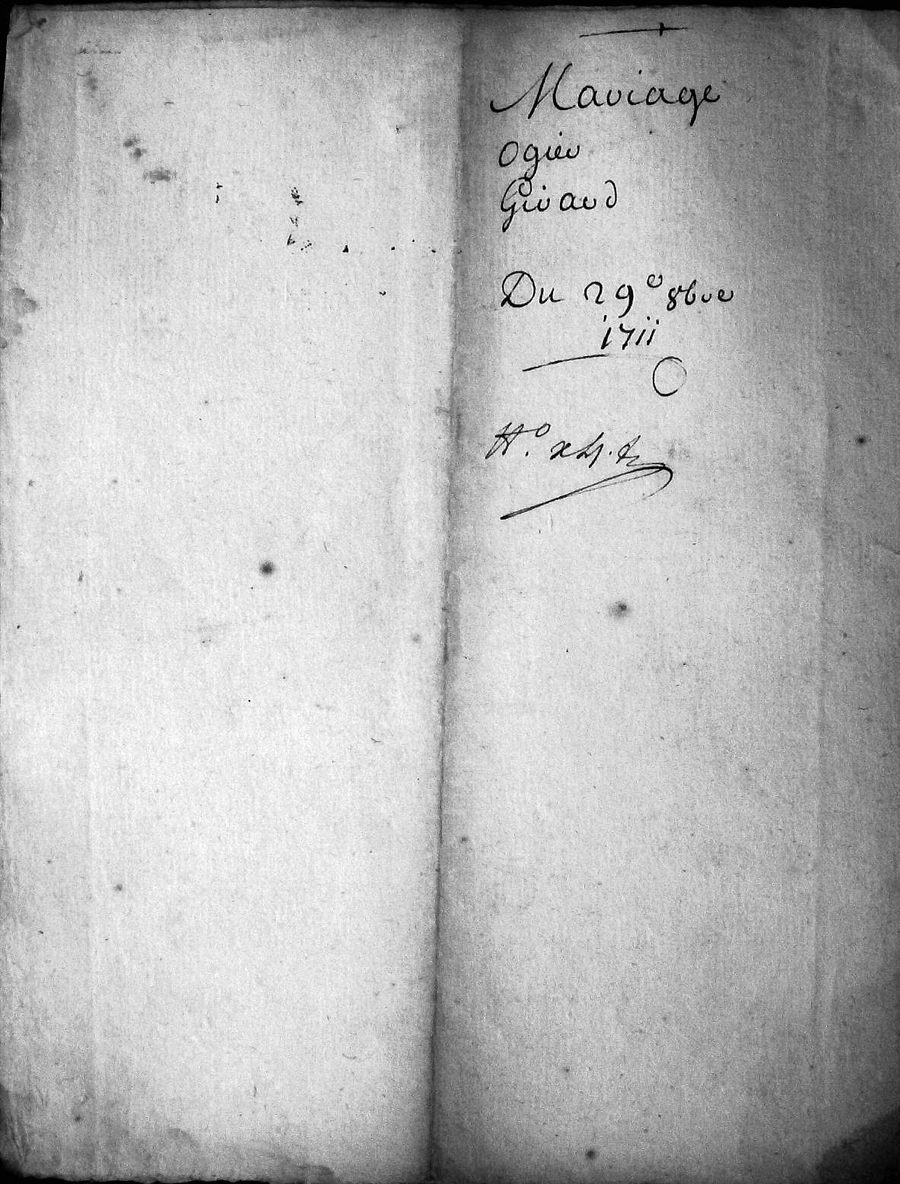 Mariage
Ogier
Giraud
Du 29e 8bre
1711